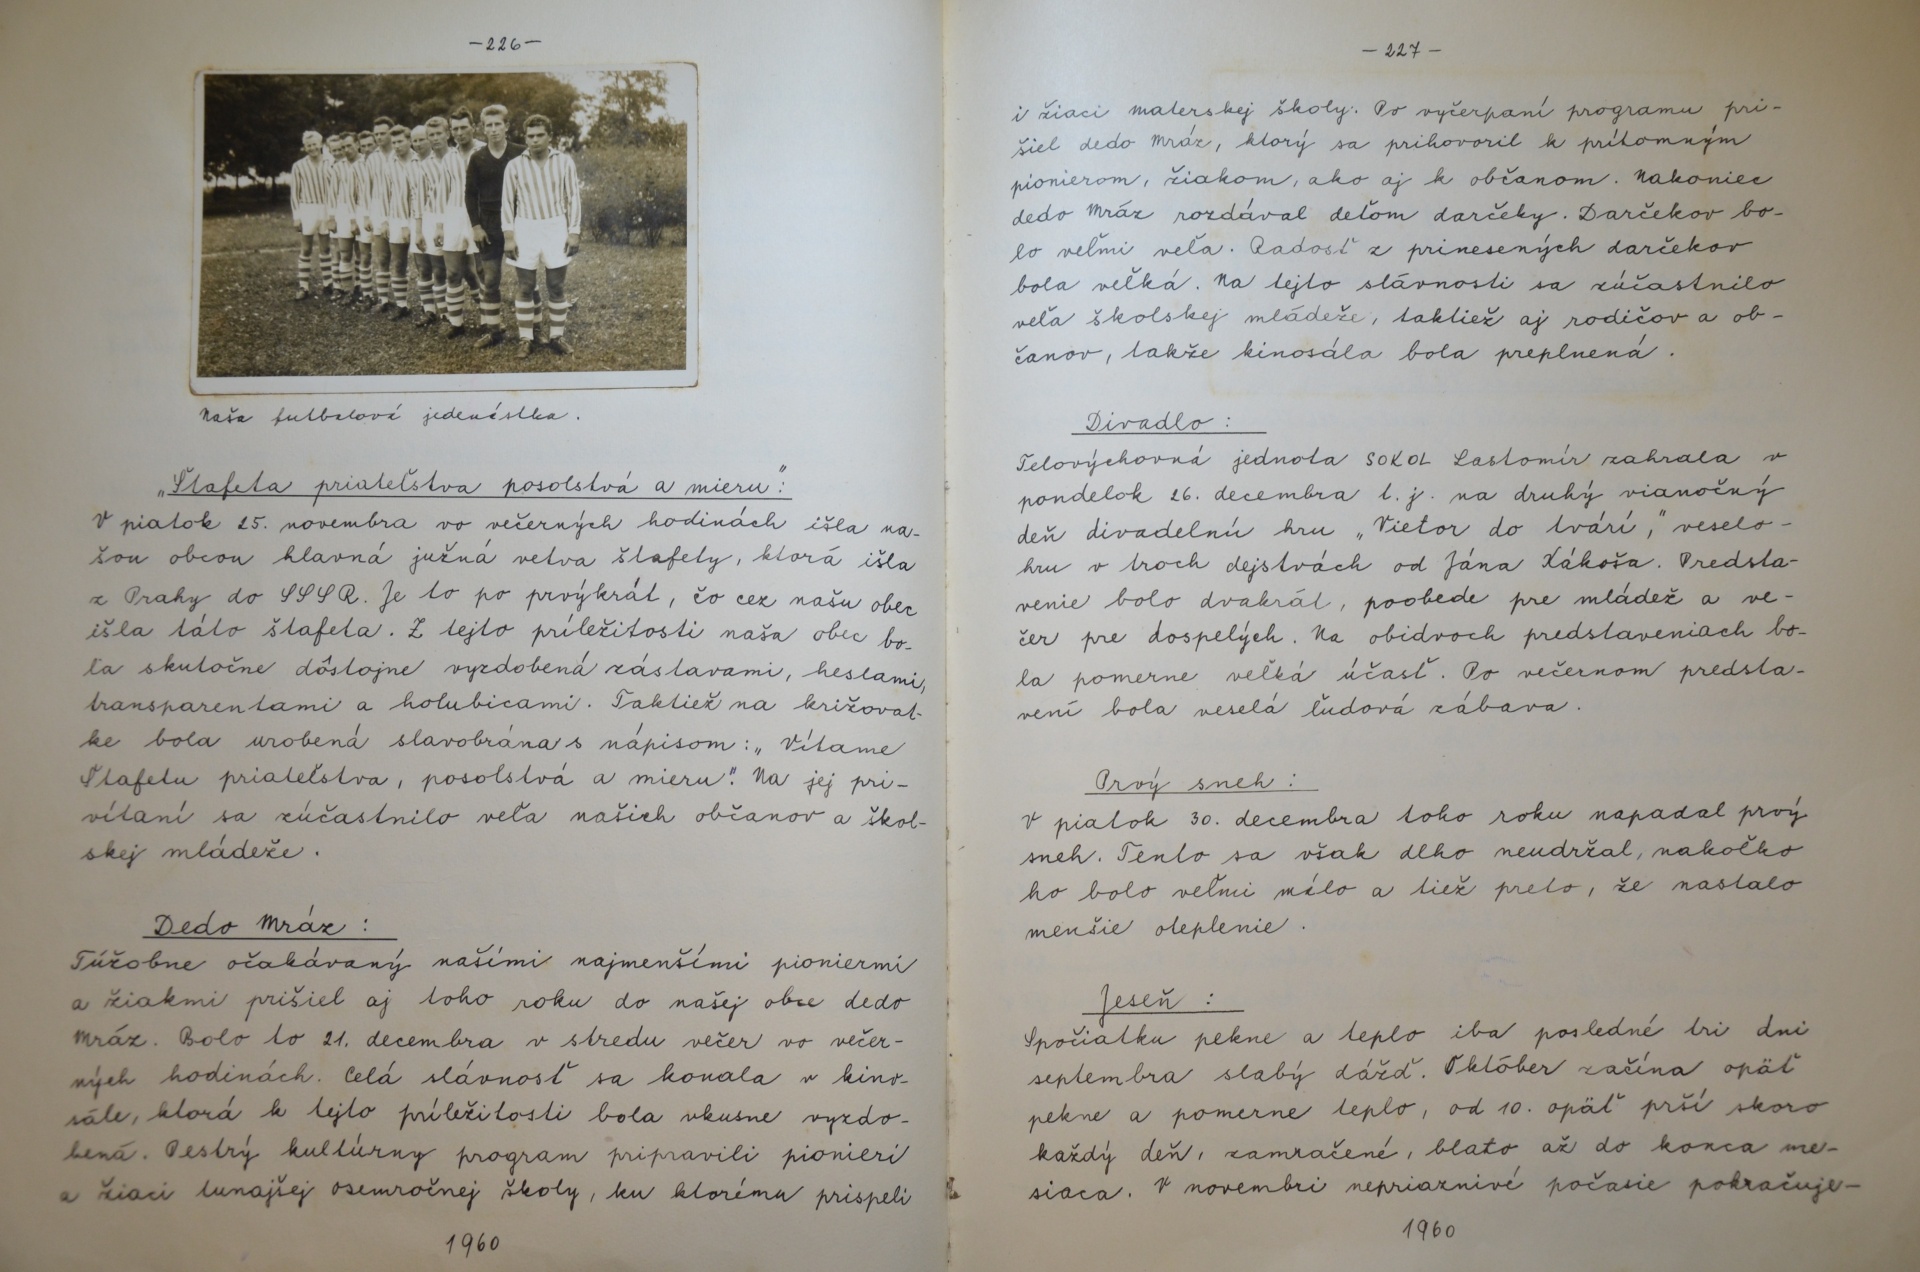 -226-
Naša futbalová jedenástka.
„Štafeta priateľstva posolstvá a mieru":
V piatok 25. novembra vo večerných hodinách išla na-
šou obcou hlavná južná vetva štafety, ktorá išla
z Prahy do SSSR. Je to po prvýkrát, čo cez našu obec
išla táto štafeta. Z tejto príležitosti naša obec bo-
la skutočne dôstojne vyzdobená zástavami, heslami,
transparentami a holubicami. Taktiež na križovat-
ke bola urobená slavobrána s nápisom: „Vítame
Štafetu priateľstva, posolstvá a mieru". Na jej pri-
vítaní sa zúčastnilo veľa našich občanov a škol-
skej mládeže.
Dedo Mráz :
Túžobne očakávaný našími najmenšími pioniermi
a žiakmi prišiel aj toho roku do našej obce dedo
Mráz. Bolo to 21. decembra v stredu večer vo večer-
ných hodinách. Celá slávnosť sa konala v kino-
sále, ktorá k tejto príležitosti bola vkusne vyzdo-
bená. Pestrý kultúrny program pripravili pionieri
a žiaci tunajšej osemročnej školy, ku ktorému prispeli
1960
-227-
i žiaci materskej školy. Po vyčerpaní programu pri-
šiel dedo Mráz, ktorý sa prihovoril k prítomným
pionierom, žiakom, ako aj k občanom. Nakoniec
dedo Mráz rozdával deťom darčeky. Darčekov bo-
lo veľmi veľa. Radosť z prinesených darčekov
bola veľká. Na tejto slávnosti sa zúčastnilo
veľa školskej mládeže, taktiež aj rodičov a ob-
čanov, takže kinosála bola preplnená.
Divadlo :
Telovýchovná jednota SOKOL Lastomír zahrala v
pondelok 26. decembra t.j. na druhý vianočný
deň divadelnú hru „Vietor do tvári," veselo-
hru v troch dejstvách od Jána Kákoša. Predsta-
venie bolo dvakrát, poobede pre mládež a ve-
čer pre dospelých. Na obidvoch predstaveniach bo-
la pomerne veľká účasť. Po večernom predsta-
vení bola veselá ľudová zábava.
Prvý sneh :
V piatok 30. decembra toho roku napadal prvý
sneh. Tento sa však dlho neudržal, nakoľko
ho bolo veľmi málo a tiež preto, že nastalo
menšie oteplenie.
Jeseň :
Spočiatku pekne a teplo iba posledné tri dni
septembra slabý dážď. Október začína opäť
pekne a pomerne teplo, od 10. opäť prší skoro
každý deň, zamračené, blato až do konca me-
siaca. V novembri nepriaznivé počasie pokračuje-
1960